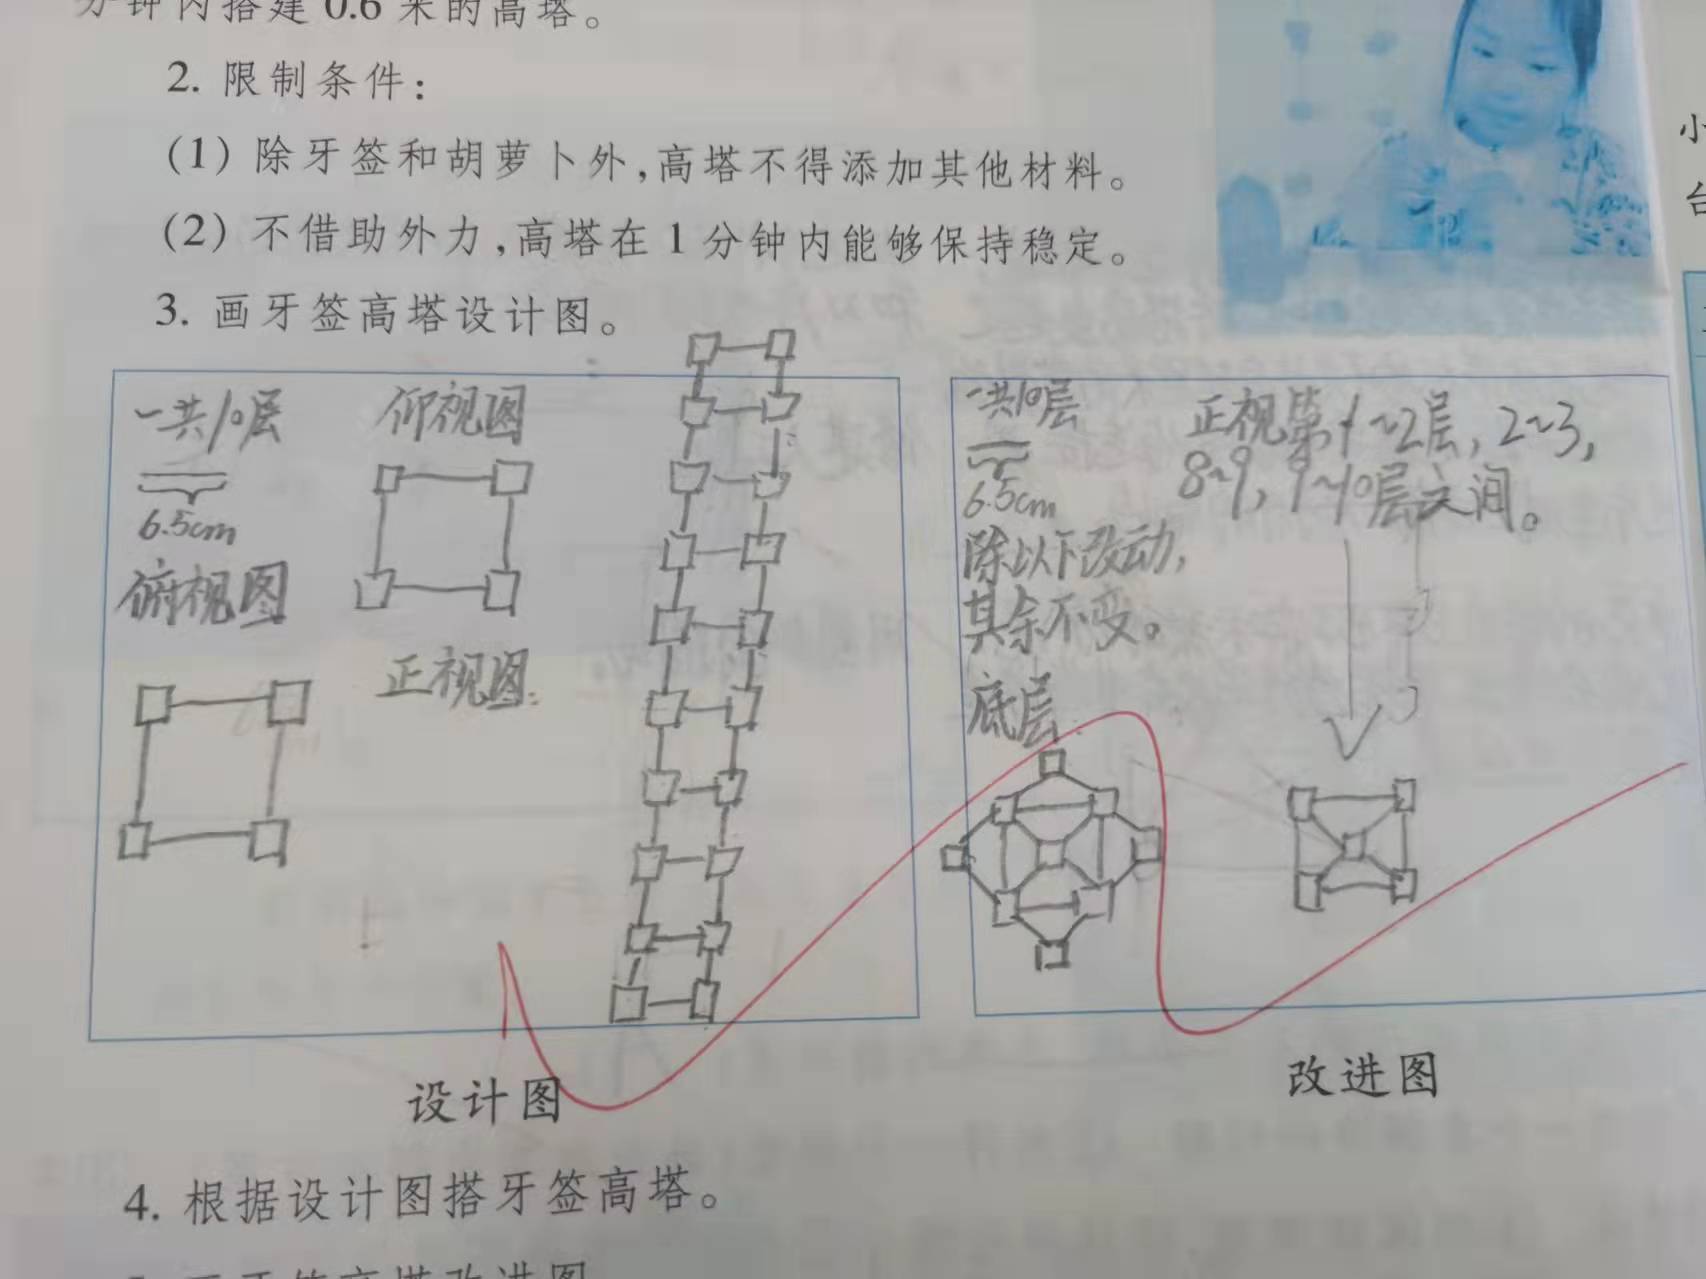 分钟内搭建 0.6 米的高塔。
2. 限制条件:
(1) 除牙签和胡萝卜外,高塔不得添加其他材料。
(2) 不借助外力,高塔在 1 分钟内能够保持稳定。
3. 画牙签高塔设计图。
一共10层
6.5cm
俯视图
仰视图
正视图:
一共10层
6.5cm
除以下改动,
其余不变。
底层
正视第1~2层,2~3,
8~9,9~10层之间。
设计图
改进图
4. 根据设计图搭牙签高塔。
小
台